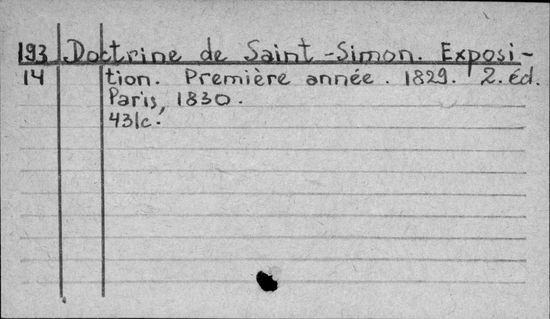 193 Doctrine de Saint-Simon. Exposi-
14 tion. Première année. 1829. 2. éd.
Paris, 1830.
431c.